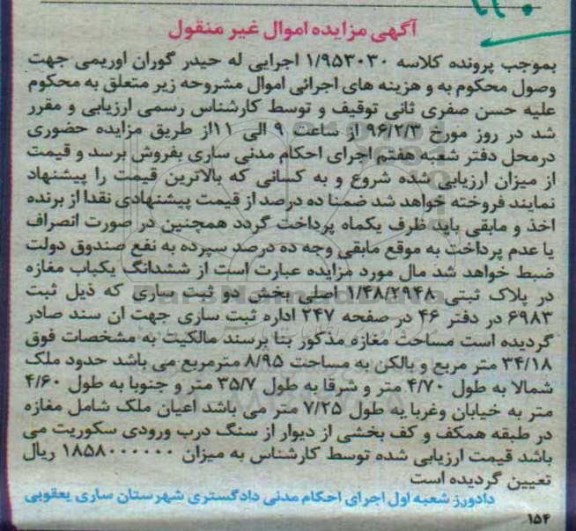 آگهی مزایده اموال غیر منقول
بموجب پرونده کلاسه ۱/۹۵۳۰۳۰ اجرایی له حیدر گوران اوریمی جهت
وصول محکوم به و هزینه های اجرائی اموال مشروحه زیر متعلق به محکوم
علیه حسن صفری ثانی توقیف و توسط کارشناس رسمی ارزیابی و مقرر
شد در روز مورخ ۹۶/۲/۳ از ساعت ۹ الی ۱۱از طریق مزایده حضوری
درمحل دفتر شعبه هفتم اجرای احکام مدنی ساری بفروش برسد و قیمت
از میزان ارزیابی شده شروع و به کسانی که بالاترین قیمت را پیشنهاد
نمایند فروخته خواهد شد ضمنا ده درصد از قیمت پیشنهادی نقدا از برنده
اخذ و مابقی باید ظرف یکماه پرداخت گردد همچنین در صورت انصراف
یا عدم پرداخت به موقع مابقی وجه ده درصد سپرده به نفع صندوق دولت
ضبط خواهد شد مال مورد مزایده عبارت است از ششدانگ یکباب مغازه
در پلاک ثبتی ۱/۴۸/۲۹۴۸ اصلی بخش دو ثبت ساری که ذیل ثبت
۶۹۸۳ در دفتر ۴۶ در صفحه ۲۴۷ اداره ثبت ساری جهت ان سند صادر
گردیده است مساحت مغازه مذکور بنا برسند مالکیت به مشخصات فوق
۳۴/۱۸ متر مربع و بالکن به مساحت ۸/۹۵ مترمربع می باشد حدود ملک
شمالا به طول ۴/۷۰ متر و شرقا به طول ۳۵/۷ متر و جنوبا به طول ۴/۶۰
متر به خیابان وغربا به طول ۷/۲۵ متر می باشد اعیان ملک شامل مغازه
در طبقه همکف و کف بخشی از دیوار از سنگ درب ورودی سکوریت می
باشد قیمت ارزیابی شده توسط کارشناس به میزان ۱۸۵۸۰۰۰۰۰۰ ریال
تعیین گردیده است
دادورز شعبه اول اجرای احکام مدنی دادگستری شهرستان ساری یعقوبی
۱۵۴